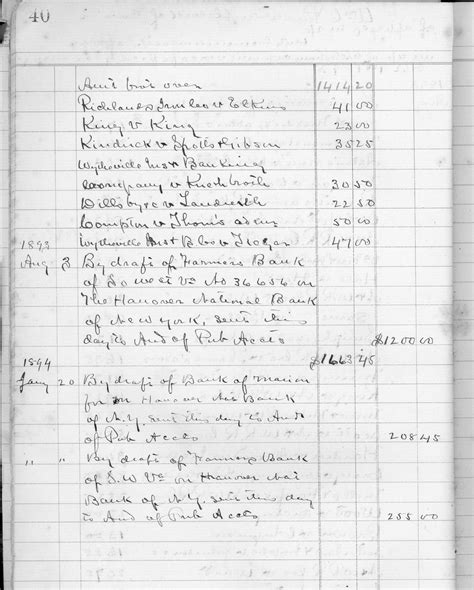 40
Am't bro't over 1414 20
Richlands Iron Co v Elkins 41 00
King v King 23 00
Kindrick v Spotts & Gibson 35 25
Wytheville Ins & Banking
Company v 30 50
v 22 50
Compton v Thom's 50 00
Wytheville Inst B Co v 47 00
1893
Aug 3 By draft of Farmers Bank
of So West Va No 36656 on
The Hanover National Bank
of New York, sent this
day to Aud of Pub Accts $1200 00
1894 $1663 45
Jany 20 By draft of Bank of Marion
for on Hanover Nat Bank
of N.Y. sent this day to Aud
of Pub Accts 208 45
" " By draft of Farmers Bank
of S.W. Va on Hanover Nat
Bank of N.Y. sent this day
to Aud of Pub Accts 255 00